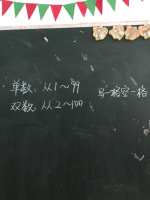 单数：从1～99
双数：从2～100
写一格空一格